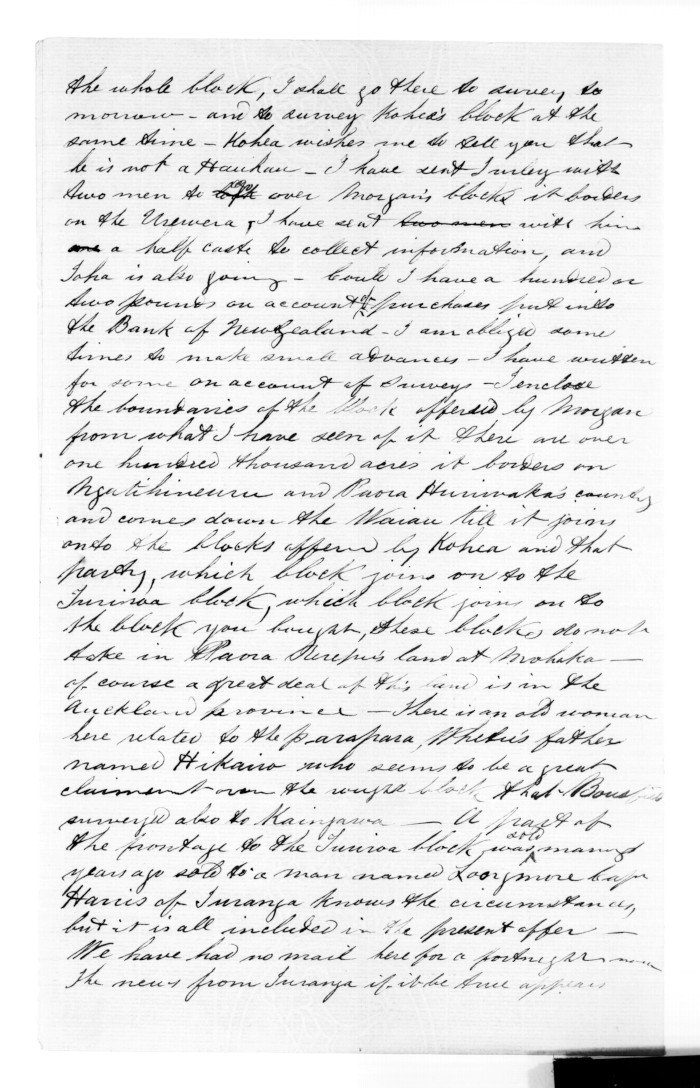 the whole block, I shall go there to survey to
morrow - and to survey Kohea's block at the
same time - Kohea wishes me to tell you that
he is not a Hauhau - I have sent Turley with
two men to go over Morgan's block, it borders
on the Urewera, I have sent two men with him
one a half caste to collect information, and
Toha is also going - Could I have a hundred or
two pounds on account of purchases put into
the Bank of New Zealand - I am obliged some
times to make small advances - I have written
for some on account of Surveys - I enclose
the boundaries of the block offered by Morgan
from what I have seen of it there are over
one hundred thousand acres it borders on
Ngatihineuru and Paora Huriwaka's country
and comes down the Waiau till it joins
onto the blocks offered by Kohea and that
party, which block joins on to the
Turiroa block, which block joins on to
the block you bought, these blocks do not
take in Paora Rerepu's land at Mohaka -
of course a great deal of this land is in the
Auckland province - There is an old woman
here related to the parapara, father
named Hikairo who seems to be a great
claiment over the block that
surveyed also to - A part of
the frontage to the Turiroa block, was sold many
years ago sold to a man named more Capt
Harris of Turanga knows the circumstances,
but it is all included in the present offer -
We have had no mail here for a fortnight now
The news from Turanga if it be true appears